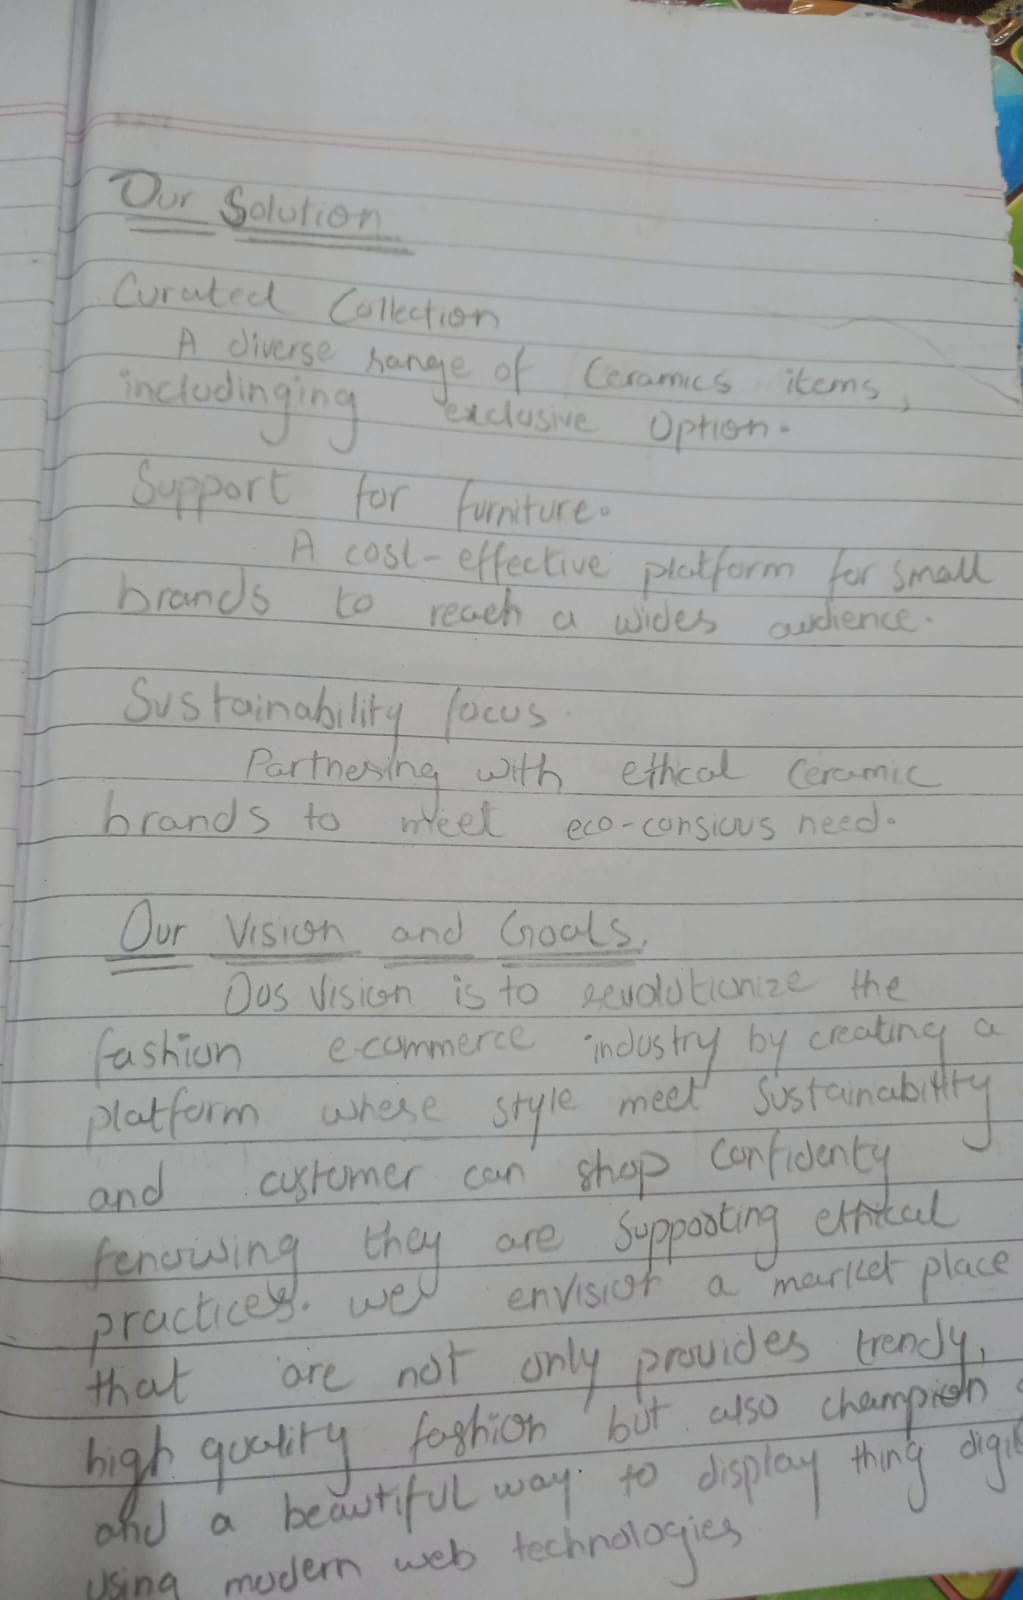 Our Solution
Curated Collection
A diverse range of Ceramics items,
includinging exclusive Option.
Support for furniture.
A cost-effective platform for small
brands to reach a wides audience.
Sustainability focus.
Partnesing with ethical Ceramic
brands to meet eco-consious need.
Our Vision and Goals.
Ous Vision is to revolutionize the
fashion e-commerce industry by creating a
platform whese style meet Sustainability
and customer can shop Confidenty
they are Supposting ethical
practices. we envision a market place
that are not only provides trendy,
high quality fashion but also champion
and a beautiful way to display thing
using modern web technologies